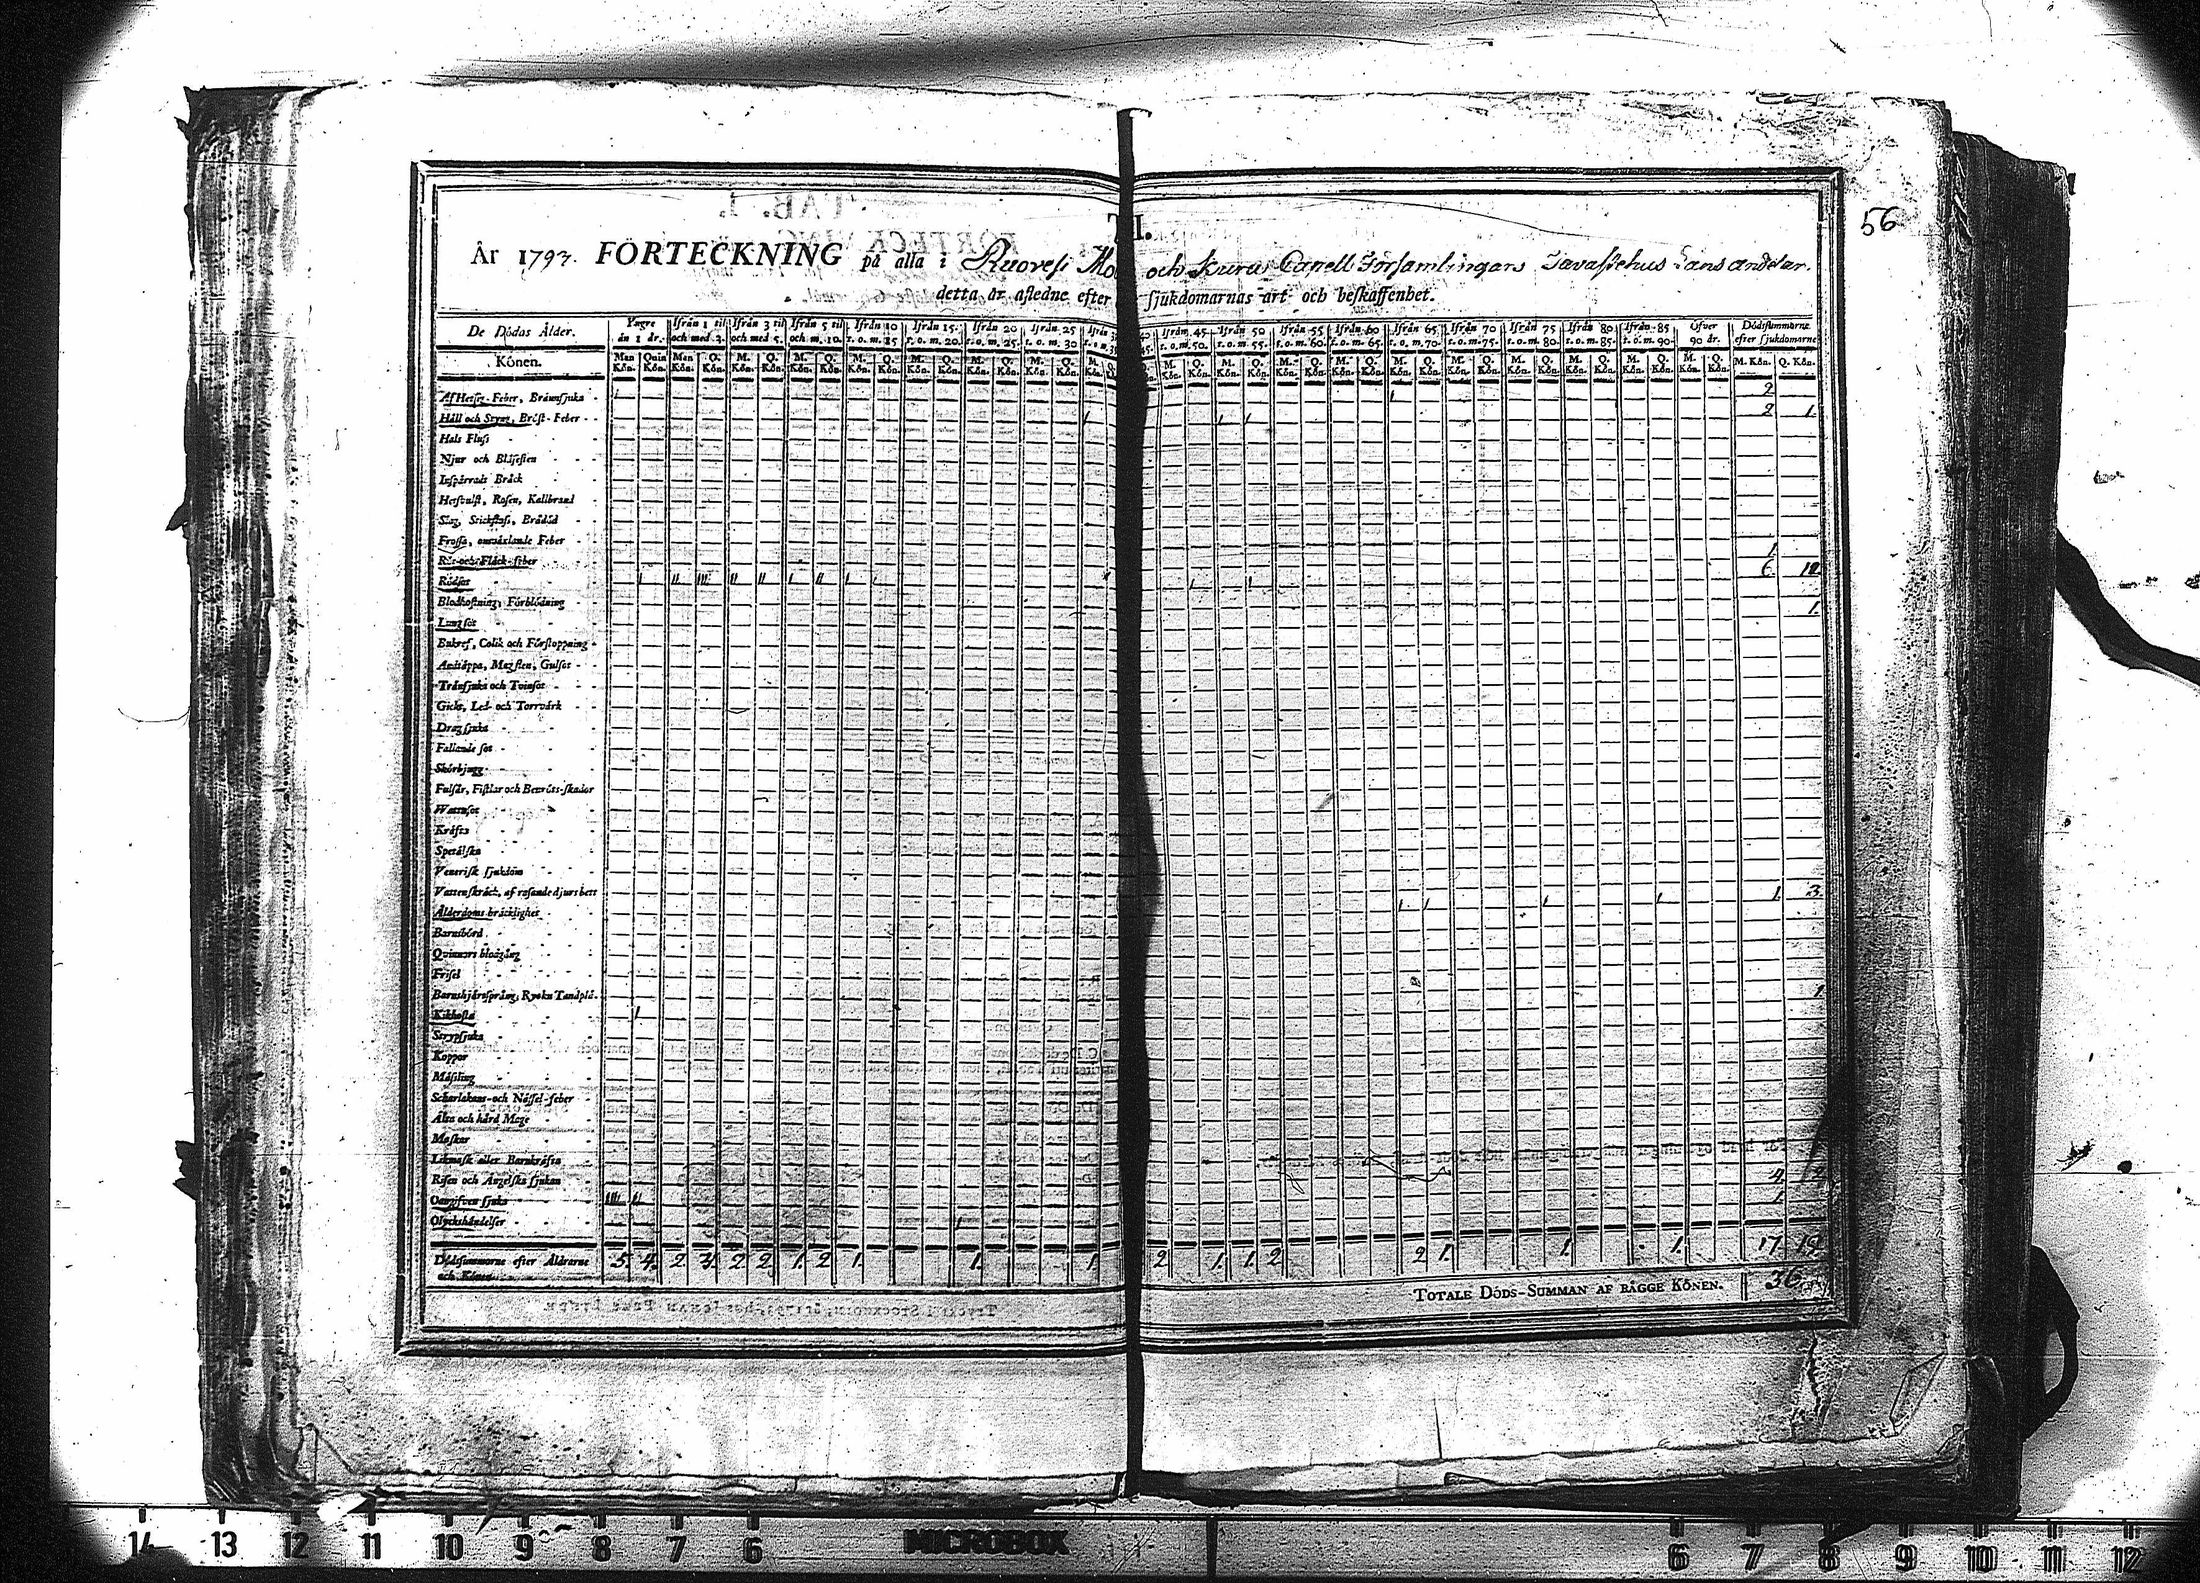 56
II.
År 1793. FÖRTECKNING på alla i Ruovesi Mo och Kuru Capell Församlingars Tavastehus Läns andelar.
detta år afledne efter sjukdomarnas art och beskaffenhet.
De Dödas Ålder. Yngre än 1 år. Ifrån 1 til och med 3. Ifrån 3 til och med 5. Ifrån 5 til och m. 10. Ifrån 10 t. o. m. 15 Ifrån 15 t. o. m. 20. Ifrån 20 t. o. m. 25. Ifrån 25 t. o. m. 30 Ifrån 45 t. o. m. 50. Ifrån 50 t. o. m. 55. Ifrån 55 t. o. m. 60. Ifrån 60 t. o. m. 65. Ifrån 65 t. o. m. 70. Ifrån 70 t. o. m. 75. Ifrån 75 t. o. m. 80. Ifrån 80 t. o. m. 85. Ifrån 85 t. o. m. 90. Öfver 90 år. Dödssummorne efter sjukdomarne
Könen. Man Kön. Quin Kön. Man Kön. Q. Kön. M. Kön. Q. Kön. M. Kön. Q. Kön. M. Kön. Q. Kön. M. Kön. Q. Kön.
Af Hetsig Feber, Bränsjuka 2
Håll och Styng, Bröst-Feber 2 1.
Hals Fluss
Njur och Blåsesten
Inspärrade Bråck
Hetsvulst, Rosen, Kallbrand
Slag, Stickfluss, Brådöd
Frossa, omväxlande Feber
Röt- och Fläck-feber 1.
Rödsot 6. 12
Blodhostning, Förblödning
Lungsot 1.
Bukref, Colik och Förstoppning
Andtäppa, Magsten, Gulsot
Tränsjuka och Tvinsot
Gickt, Led- och Torrvärk
Dragsjuka
Fallande sot
Skörbjugg
Fulsår, Fistlar och Benröts-skador
Watnusot
Kräfta
Spetälska
Venerisk sjukdom
Vattenskräck, af rasande djurs bett
Ålderdoms bräcklighet 1. 3.
Barnsbörd
Qvinnors blodgång
Frisel
Barnshjärtsprång, Ryck, Tandplå.
Kikhosta 1
Strypsjuka
Koppor
Mässling
Scharlakans- och Nässel-feber
Älta och hård Mage
Maskar
Likmask eller Barnkräfta
Risen och Ängelska sjukan
Oangifven sjuka 4. 2
Olyckshändelser 1.
Dödssummorne efter Åldrarne och Könen 5. 4. 2. 3. 2 2 1. 2 1. 1. 1. 2 1. 1. 2 2 1. 1. 1. 17. 19.
TOTALE DÖDS-SUMMAN AF BÄGGE KÖNEN. 36.
14 13 12 11 10 9 8 7 6 MICROBOX 6 7 8 9 10 11 12